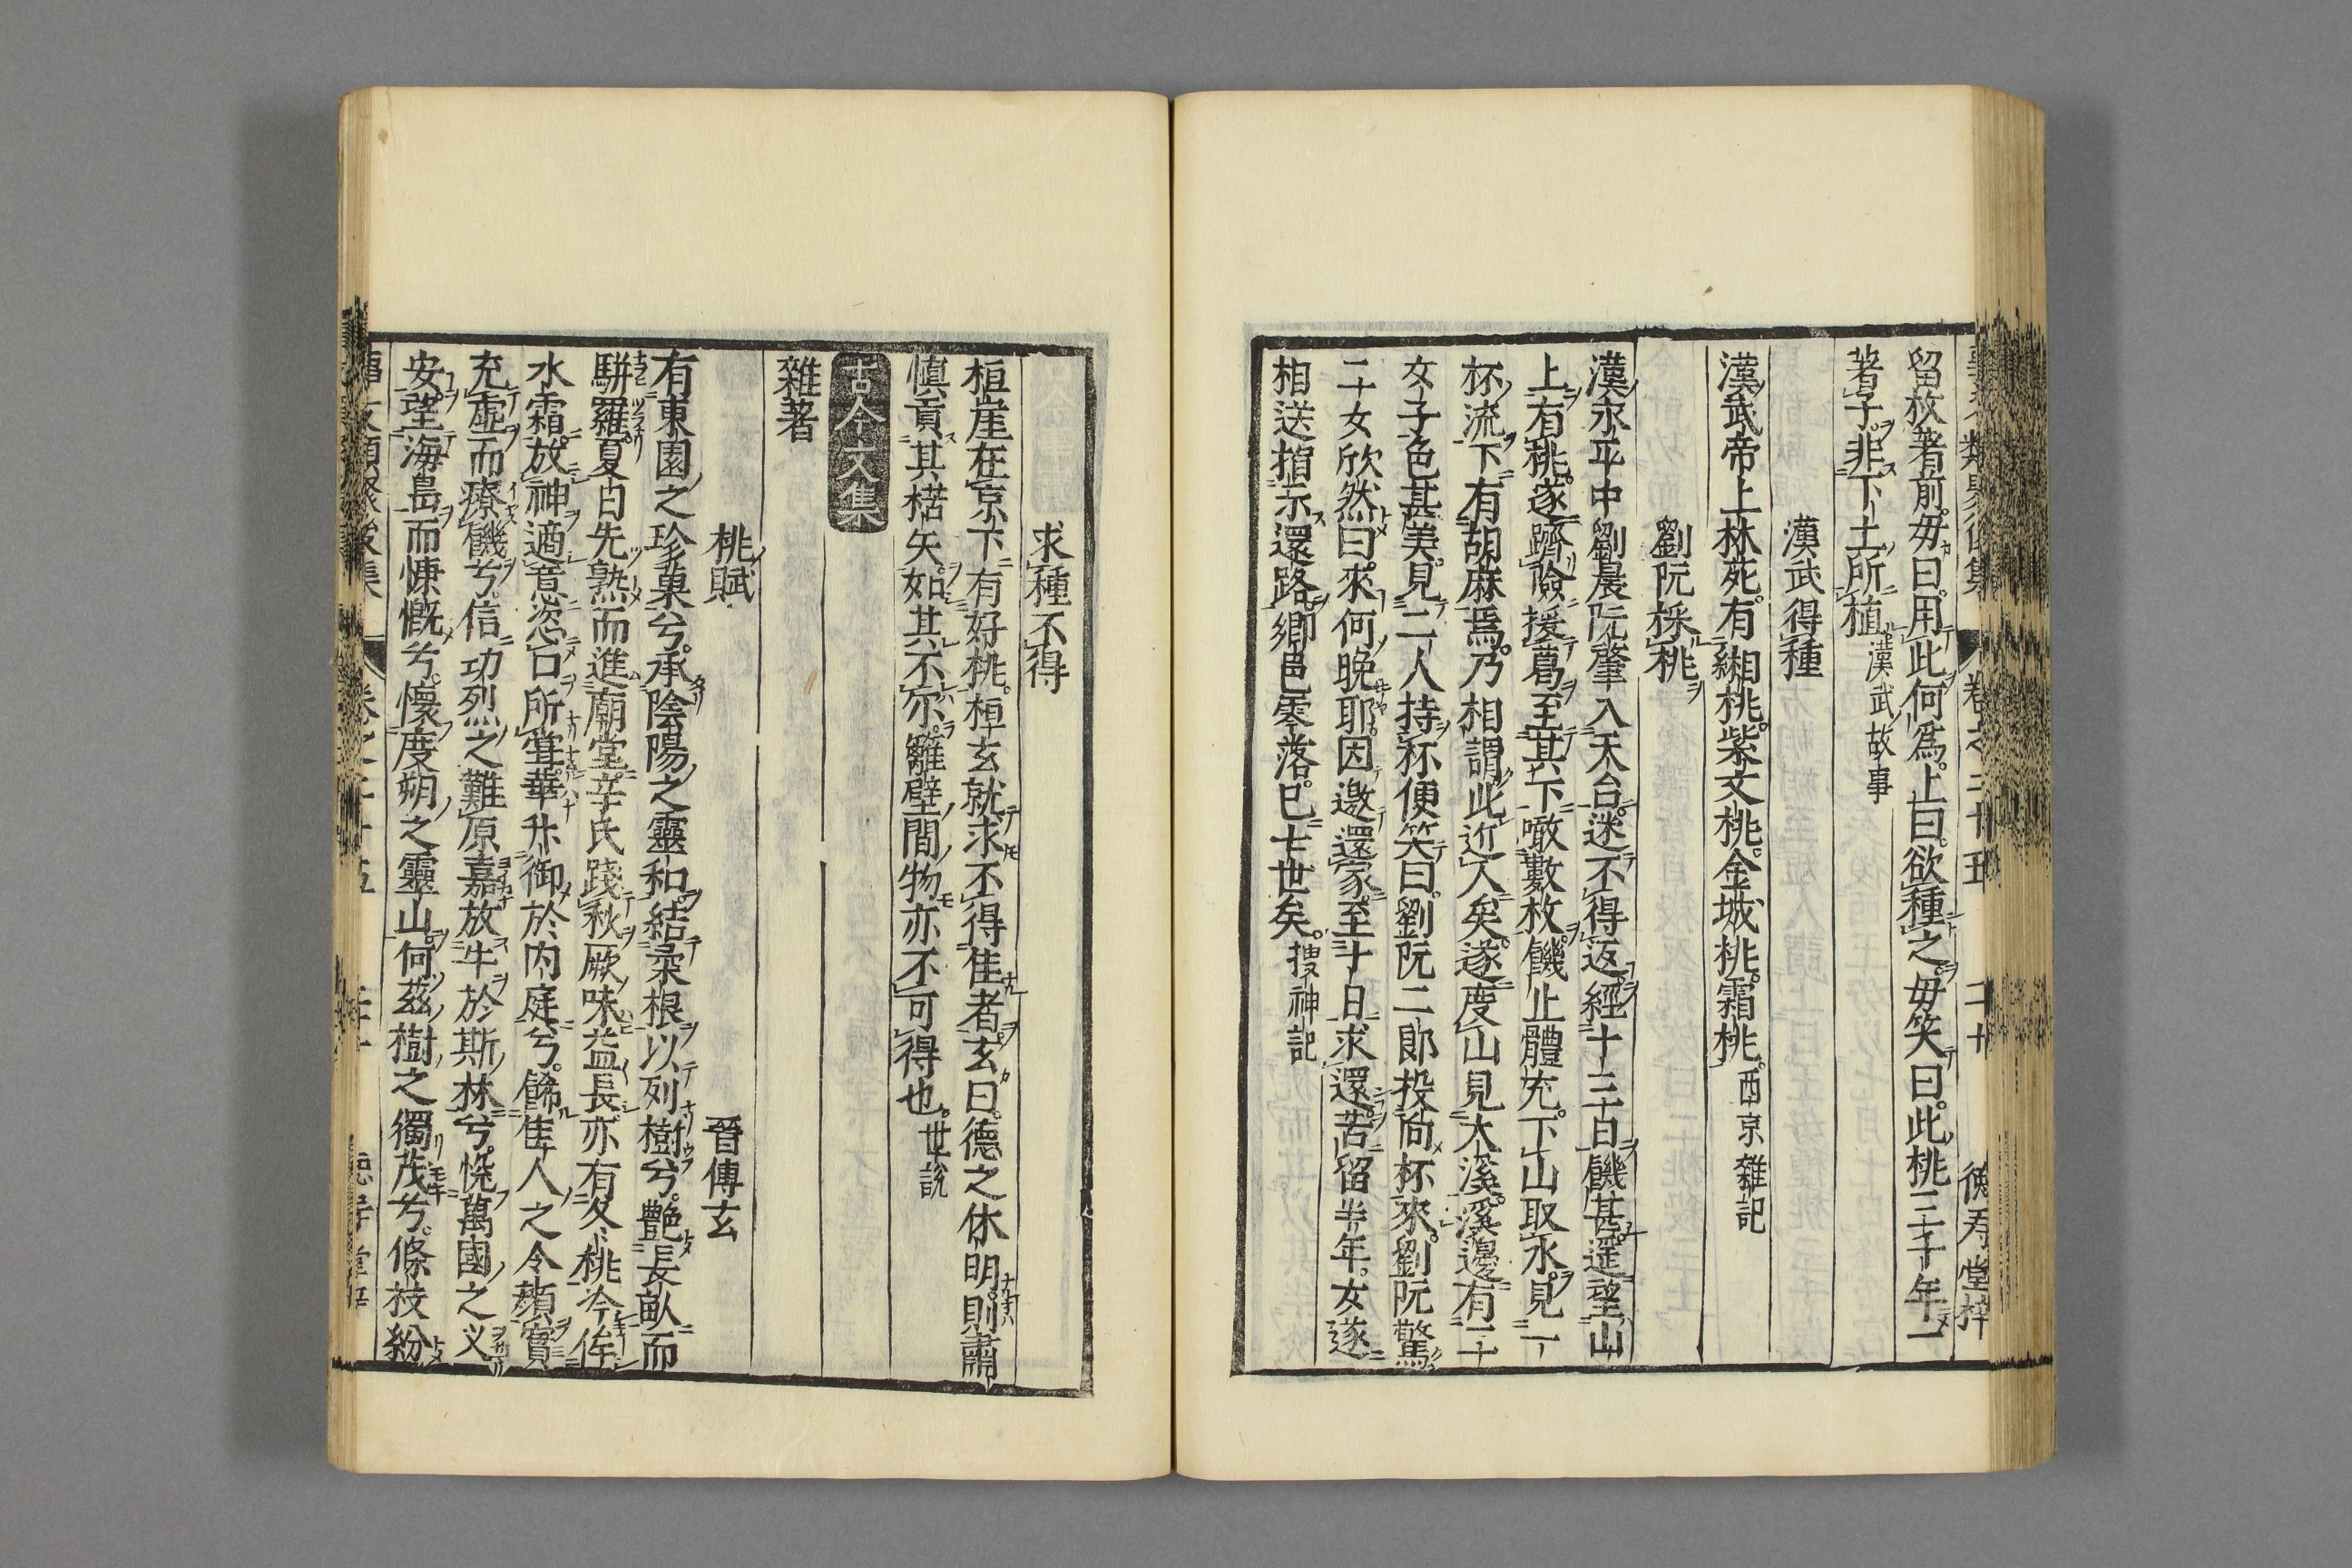 留放著前。毋曰。用此何爲。上曰。欲種之。毋笑曰。此桃三千年一
著子。非下土所植 漢武故事
漢武得種
漢武帝上林苑。有緗桃。紫文桃。金城桃。霜桃。西京雜記
劉阮採桃
漢永平中劉晨阮肇入天台。迷不得返。經十三日饑甚。遥望山
上有桃。遂躋險援葛至其下。噉數枚。饑止體充。下山取水。見一
杯流下。有胡麻焉。乃相謂此近人矣。遂度山見大溪。溪邊有二
女子色甚美。見二人持杯便笑曰。劉阮二郎投向杯來。劉阮驚
二女欣然曰。來何晚耶。因邀還家。至十日求還。苦留半年。女遂
相送指示還路。鄉邑零落。已七世矣。搜神記
求種不得
桓崖在京下有好桃。桓玄就求不得佳者。玄曰。德之休明。則肅
慎貢其楛矢。如其不尒。籬壁間物亦不可得也。世說
古今文集
雜著
桃賦 晉傅玄
有東園之珍菓兮。承陰陽之靈和。結柔根以列樹兮。艷長畝而
駢羅。夏日先熟而進廟堂。辛氏踐秋厥味益長。亦有冬桃冷侔
水霜。放神適意恣口所甞。華升御於内庭兮。餙佳人之令顔。實
充虛而療饑兮。信功烈之難原。嘉放牛於斯林兮。恱萬國之乂
安。望海島而慷慨兮。懷度朔之靈山。何茲樹之獨茂兮。條枝紛